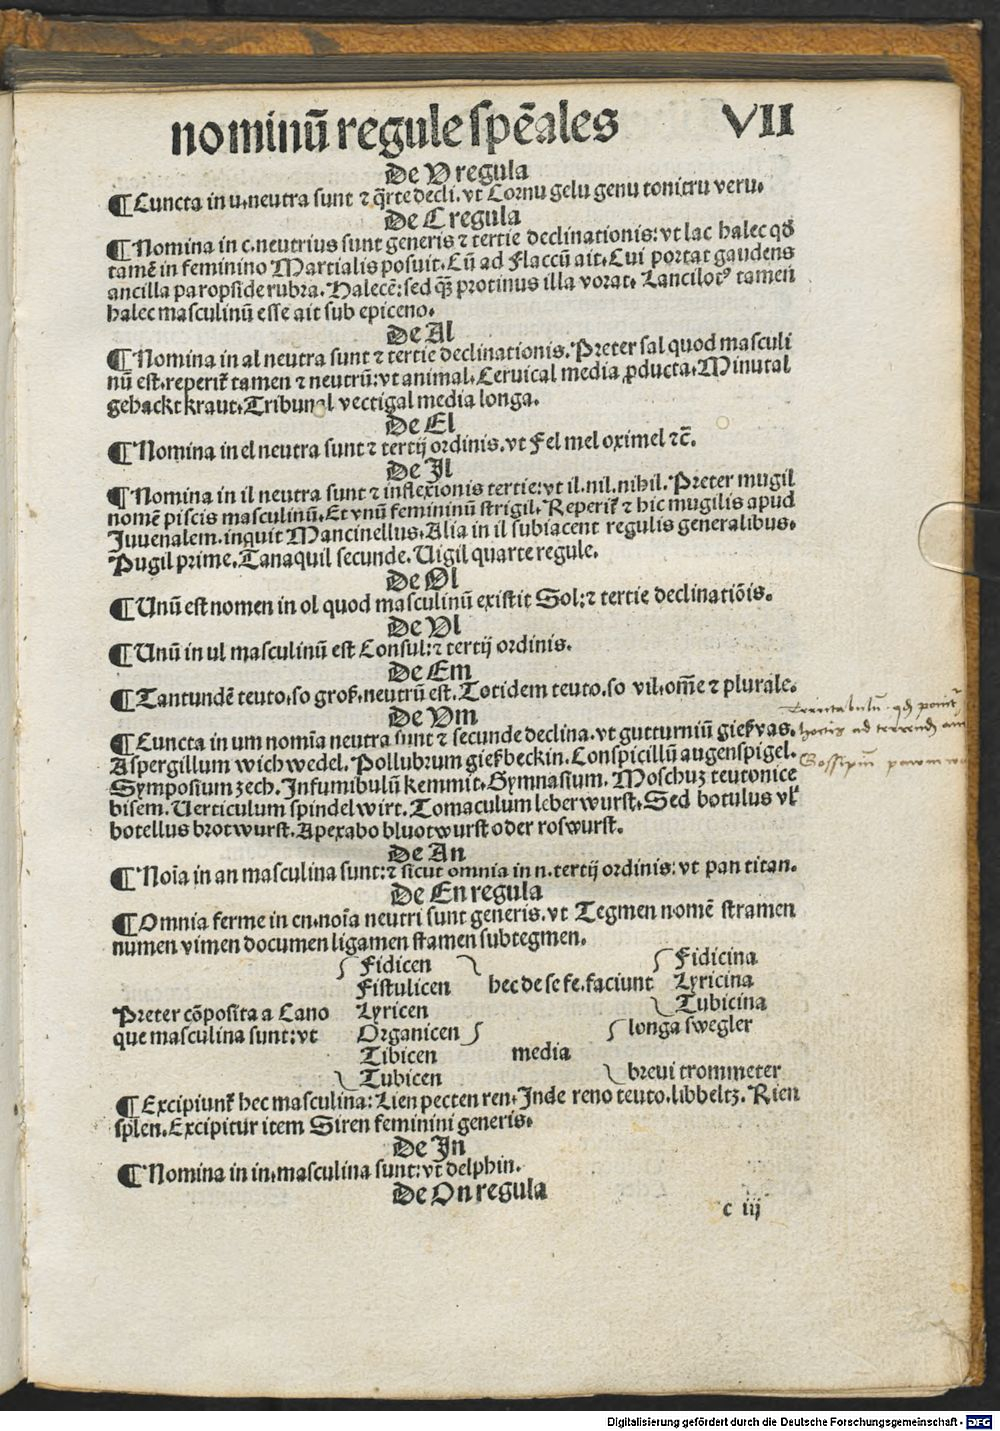 nominū regule spēales VII
De V regula
¶ Cuncta in u, neutra sunt ⁊ q̄rte decli. vt Cornu gelu genu tonitru veru.
De C regula
¶ Nomina in c, neutrius sunt generis ⁊ tertie declinationis: vt lac halec qđ
tamē in feminino Martialis posuit. Cū ad Flaccū ait. Cui portat gaudens
ancilla paropside rubra. Halecē: sed q̄ꝫ protinus illa vorat. Lancilotꝰ tamen
halec masculinū esse ait sub epiceno.
De Al
¶ Nomina in al neutra sunt ⁊ tertie declinationis. Preter sal quod masculi
nū est. reperit̄ tamen ⁊ neutrū: vt animal. Ceruical media ꝓducta. Minutal
gehackt kraut. Tribunal vectigal media longa.
De El
¶ Nomina in el neutra sunt ⁊ tertij ordinis. vt Fel mel oximel ⁊c̄.
De Il
¶ Nomina in il neutra sunt ⁊ inflexionis tertie: vt il. nil. nihil. Preter mugil
nomē piscis masculinū. Et vnū femininū strigil. Reperit̄ ⁊ hic mugilis apud
Juvenalem. inquit Mancinellus. Alia in il subiacent regulis generalibus.
Pugil prime. Tanaquil secunde. Uigil quarte regule.
De Ol
¶ Unū est nomen in ol quod masculinū existit Sol: ⁊ tertie declinatiōis.
De Vl
¶ Unū in ul masculinū est Consul: ⁊ tertij ordinis.
De Em
¶ Tantundē teuto. so groß. neutrū est. Totidem teuto. so vil. om̄e ⁊ plurale.
De Vm
¶ Cuncta in um nomīa neutra sunt ⁊ secunde declina. vt gutturniū gießvas.
Aspergillum wichwedel. Pollubrum gießbeckin. Conspicillū augenspigel.
Symposium zech. Infumibulū kemmit. Gymnasium. Moschuꝫ teutonice
bisem. Uerticulum spindel wirt. Tomaculum leberwurst. Sed botulus vl̄
botellus brotwurst. Apexabo bluotwurst oder roswurst.
De An
¶ Noīa in an masculina sunt: ⁊ sicut omnia in n. tertij ordinis: vt pan titan.
De En regula
¶ Omnia ferme in en. noīa neutri sunt generis. vt Tegmen nomē stramen
numen vimen documen ligamen stamen subtegmen.
Fidicen Fidicina
Fistulicen hec de se fe. faciunt Lyricina
Preter cōposita a Cano Lyricen Tubicina
que masculina sunt: vt Organicen longa swegler
Tibicen media
Tubicen brevi trommeter
¶ Excipiunt̄ hec masculina: Lien pecten ren. Inde reno teuto. libbeltz. Rien
splen. Excipitur item Siren feminini generis.
De In
¶ Nomina in in. masculina sunt: vt delphin.
De On regula
c iij
Digitalisierung gefördert durch die Deutsche Forschungsgemeinschaft - DFG